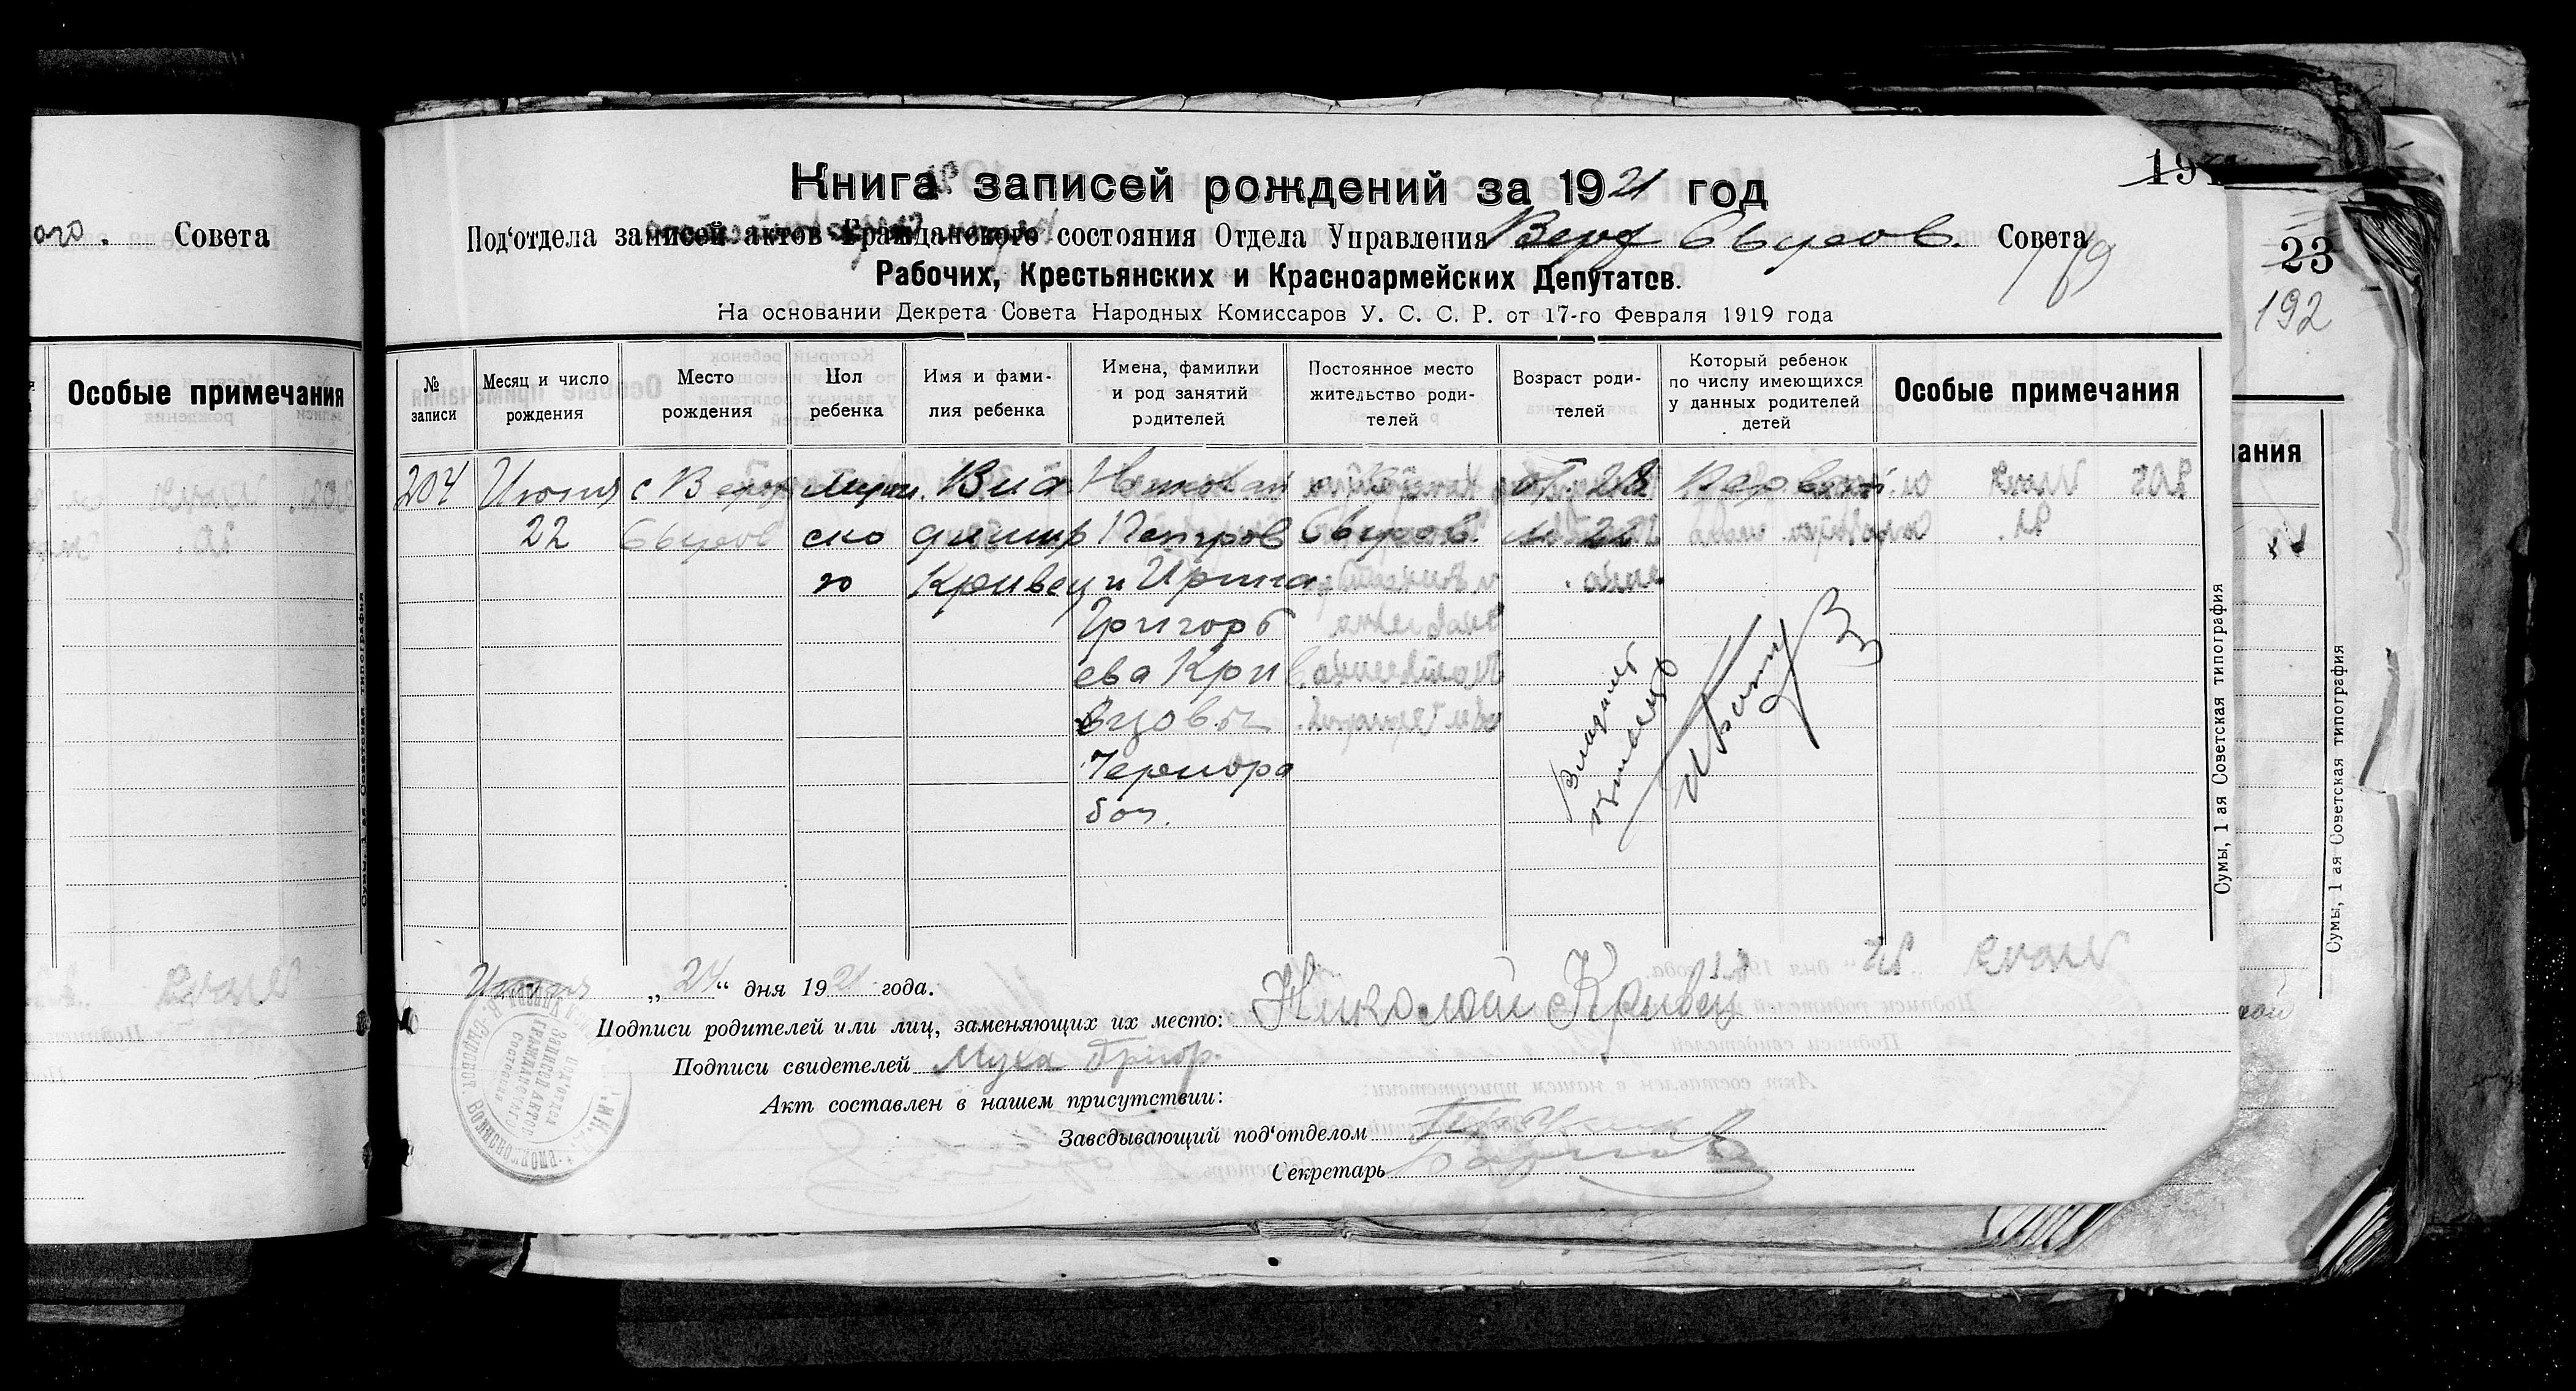 Совета
Особые примечания
Книга записей рождений за 1921 год
Под‘отдела записей актов Гражданского состояния Отдела Управления Верх Сыров. Совета
Рабочих, Крестьянских и Красноармейских Депутатов.
На основании Декрета Совета Народных Комиссаров У. С. С. Р. от 17-го Февраля 1919 года
23
192
№ записи
Месяц и число рождения
Место рождения
Пол ребенка
Имя и фамилия ребенка
Имена, фамилии и род занятий родителей
Постоянное место жительство родителей
Возраст родителей
Который ребенок по числу имеющихся у данных родителей детей
Особые примечания
204 Июня с Верх Мужс Вла Николай с Верх от. 28 Первый
22 Сыров ско димир Петров Сыров. м 22
го Кривец и Ирина
Григорь
ева Кри
вцовы
Чернора
боч.
Июня „24“ дня 1921 года.
Подписи родителей или лиц, заменяющих их место: Николай Кривец
Подписи свидетелей Муха Григор.
Акт составлен в нашем присутствии:
Заведывающий под‘отделом
Секретарь
Сумы, 1 ая Советская типография
Сумы, 1 ая Советская типография